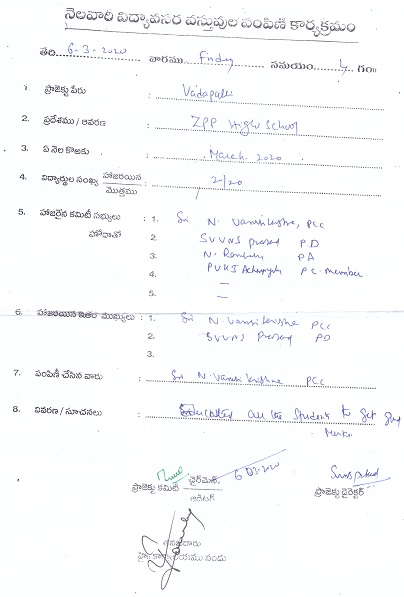 నెలవారీ విద్యావసర వస్తువుల పంపిణీ కార్యక్రమం
తేది 6-3-2020 వారము Friday సమయం 4 గం॥
1. ప్రాజెక్టు పేరు : Vadapalli
2. ప్రదేశము / ఆవరణ : ZPP High School
3. ఏ నెల కొఱకు : March 2020
4. విద్యార్థుల సంఖ్య హాజరయిన : 20/20
మొత్తము
5. హాజరైన కమిటీ సభ్యులు : 1. Sri N. Vamsi Krishna, PCC
హోదాతో 2. SVVNS Prasad P.D
3. N. PA
4. PVHS P.C. Member
5. —
6. హాజరయిన ఇతర ముఖ్యులు : 1. Sri N. Vamsi Krishna PCC
2. SVVNS Prasad PD
3.
7. పంపిణీ చేసిన వారు : Sri N. Vamsi Krishna PCC
8. వివరణ / సూచనలు : all the Students to get good
Marks
6-03-2020
ప్రాజెక్టు కమిటీ ఛైర్మెన్
ఆడిటర్
ప్రాజెక్టు డైరెక్టర్